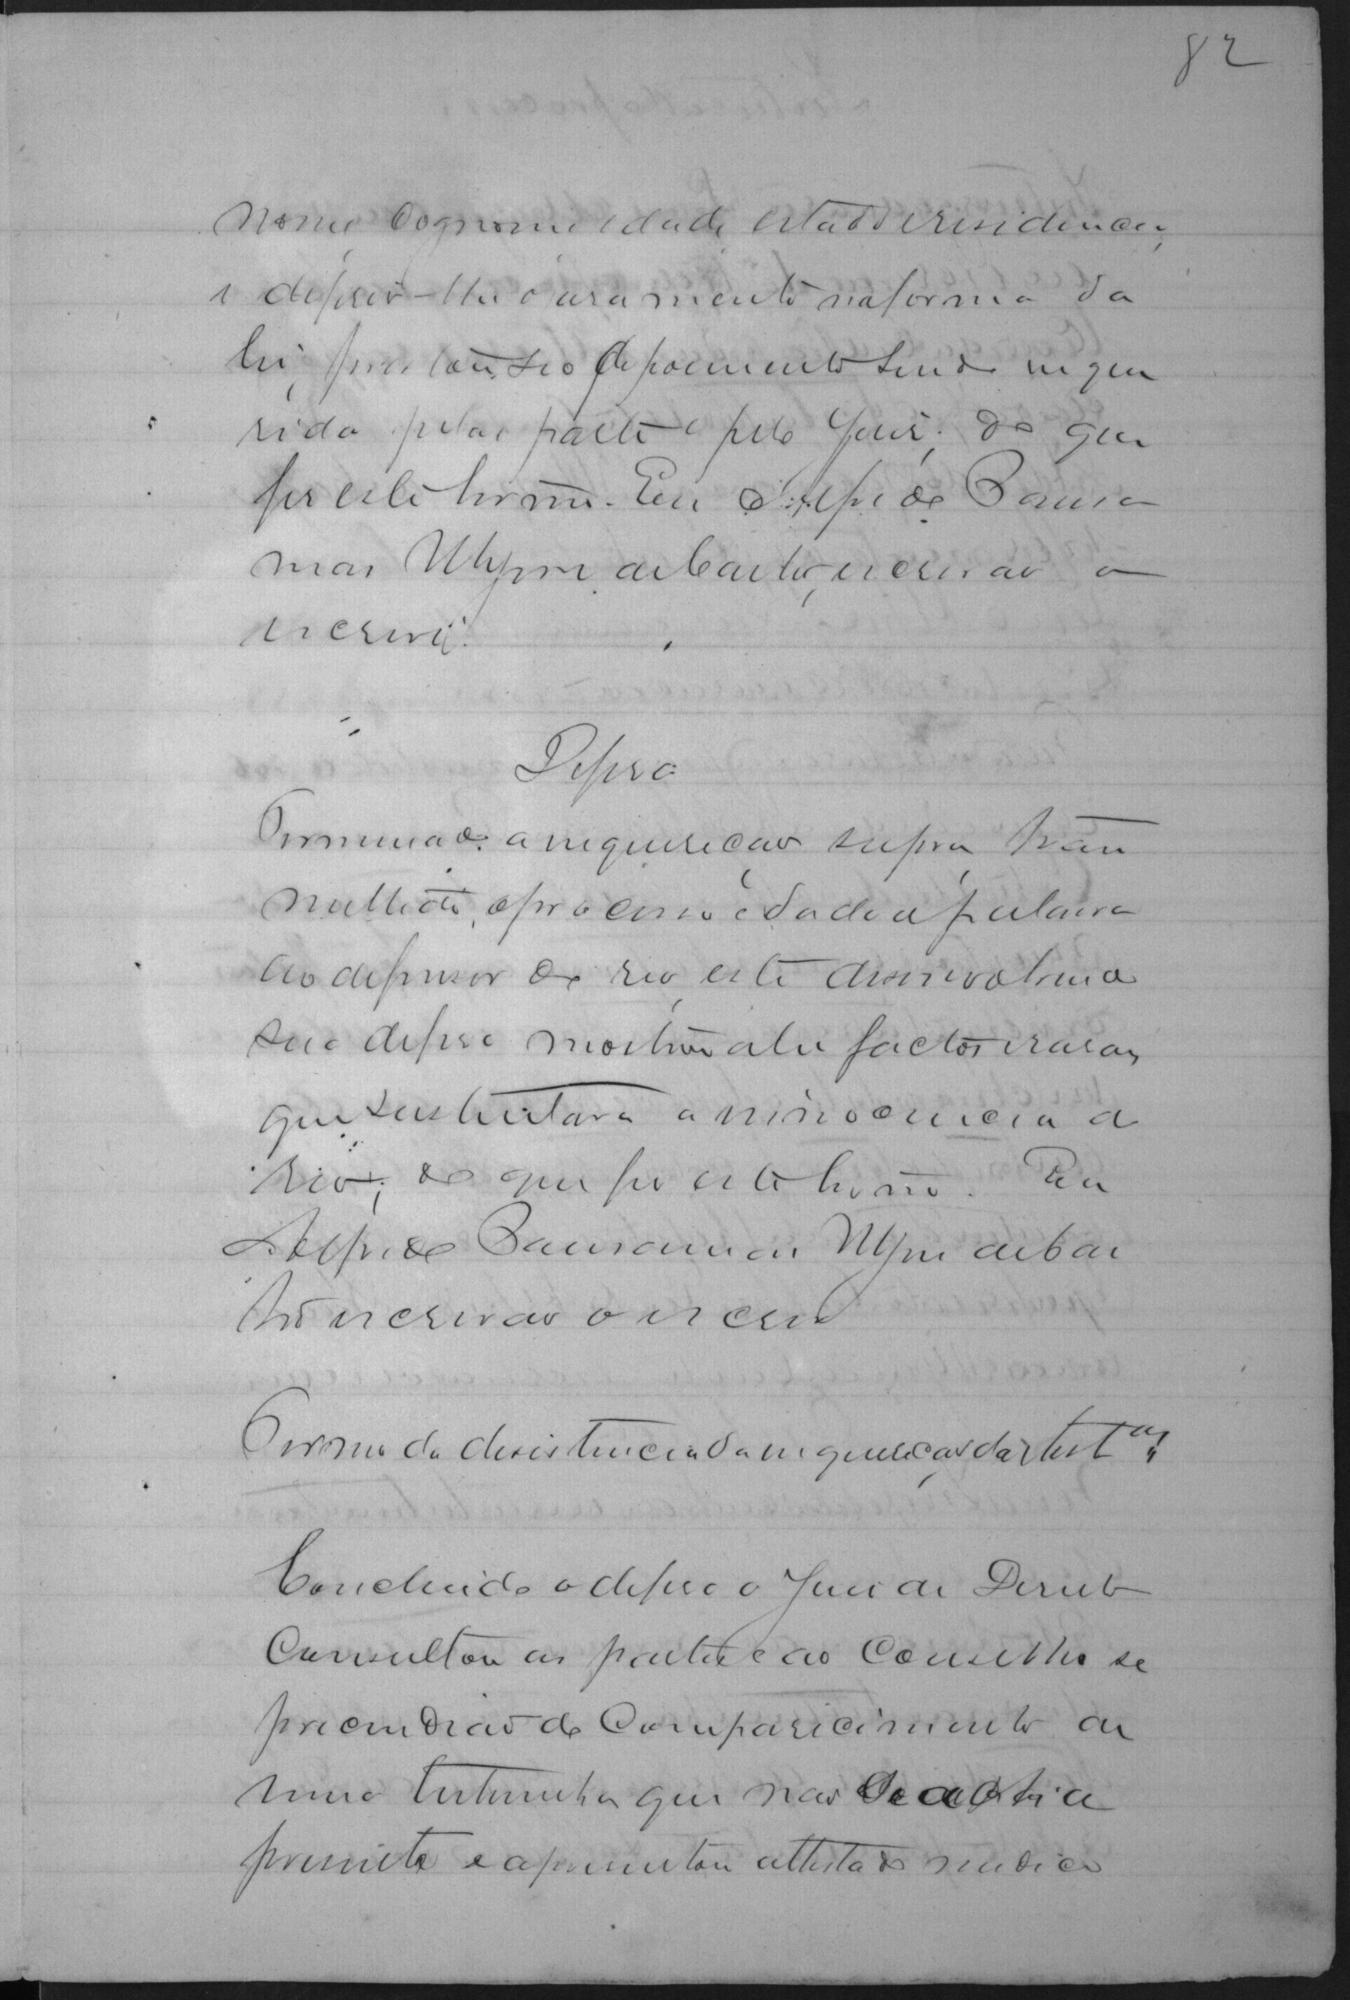 82
nome, cognome idade, estado e residencia,
e deferio-lhe o juramento na forma da
lei, prestou seo depoimento sendo inque
rida pelas partes e pelo Juiz; do que
fis este termo. Eu Alfredo Pausa
nias de Castro, escrivão o
escrevi.
Defesa
Terminada a inquirição supra,
foi concedida a palavra
ao defensor do reo, este desenvolveu a
sua defesa mostrando factos e rasões
que sustentavão a innocencia do
reo; do que fis este termo. Eu
Alfredo Pausanias de Cas
tro escrivão o escrevi
Termo da desistencia da inquirição das test.as
Concluida a defesa o Juiz de Direito
consultou as partes e ao Conselho se
prescindião do comparecimento de
uma testemunha que não se achava
presente e apresentou attestado medico